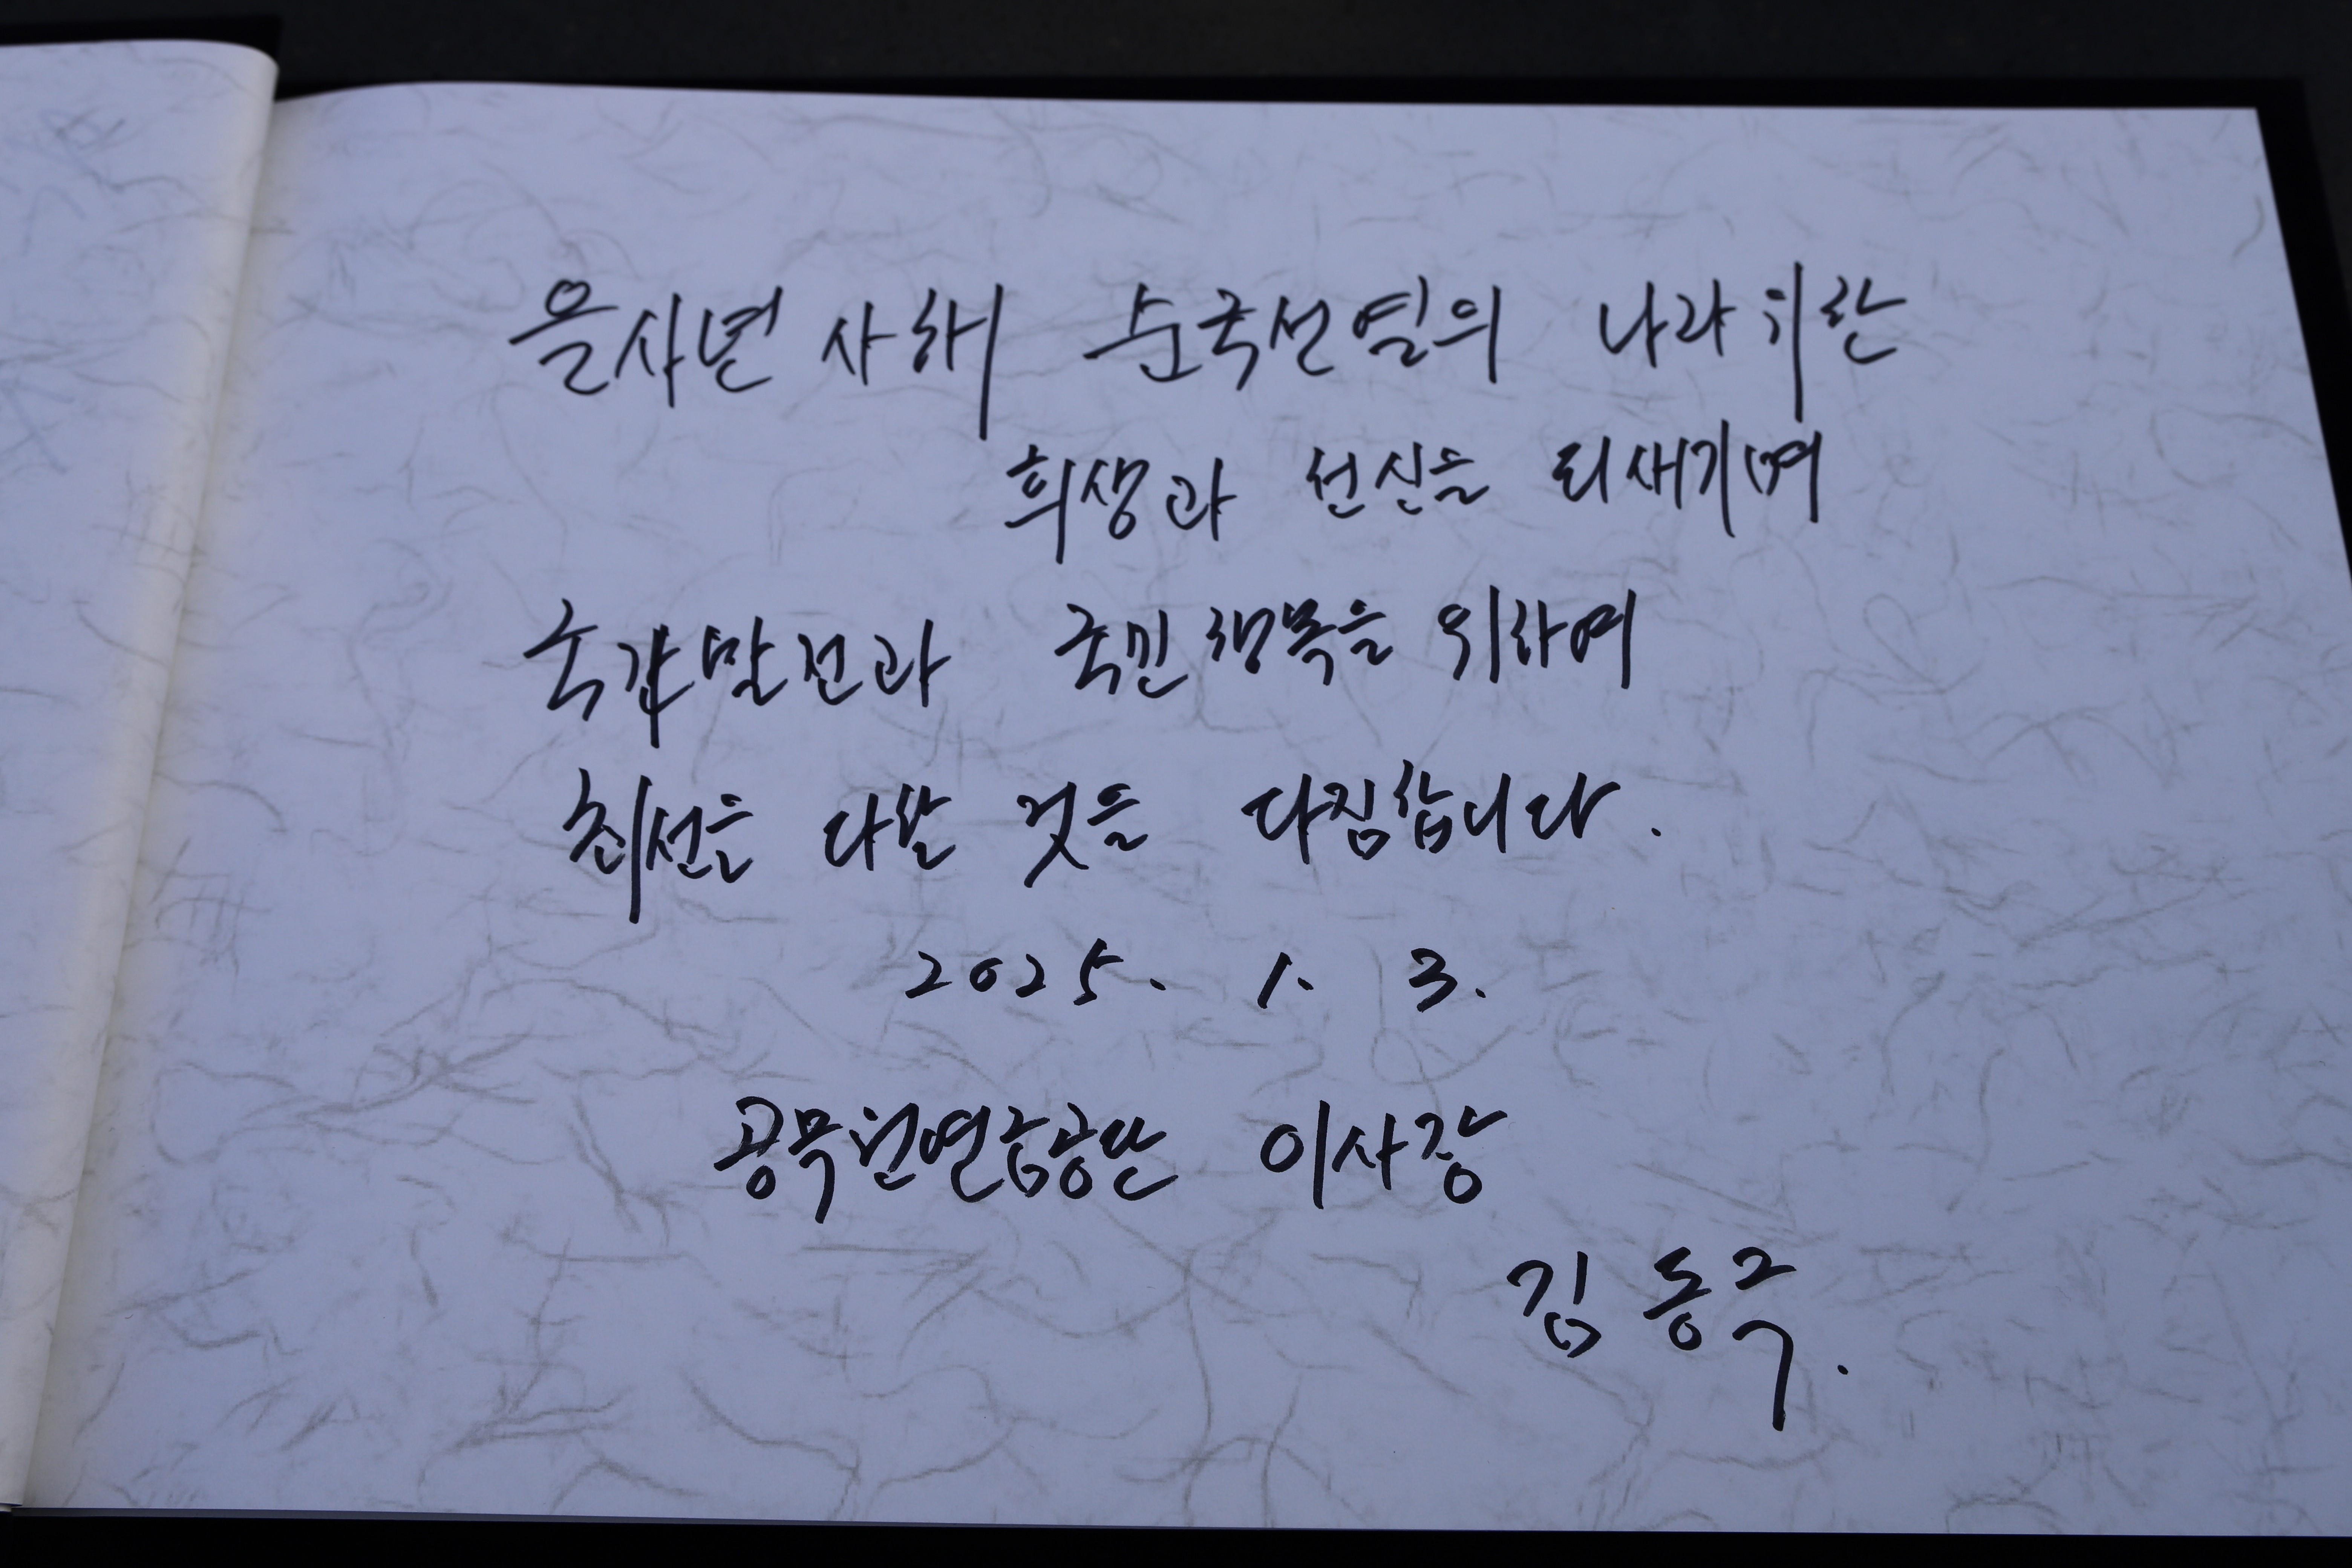 을사년 새해 순국선열의 나라 위한
희생과 헌신을 되새기며
국가발전과 국민행복을 위하여
최선을 다할 것을 다짐합니다.
2025. 1. 3.
공무원연금공단 이사장
김동극.